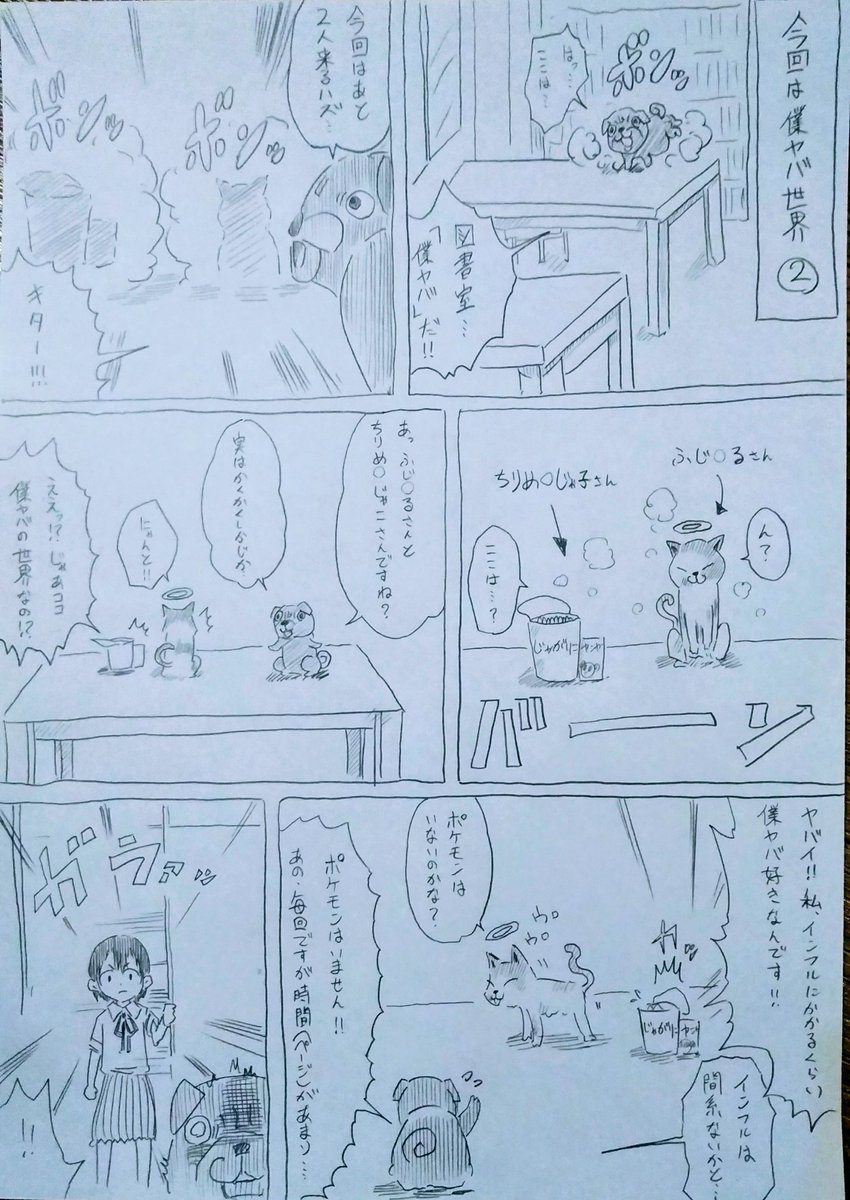 今回は僕ヤバ世界②
ボンッ
はっ…
ここは…
図書室…
「僕ヤバ」だ!!
今回はあと
2人来るハズ…
ボンッ
ボンッ
キター!!!
ふじ○るさん
ん?
ちりめ○じゃ子さん
ここは…?
じゃがりこ
バーーン
あっふじ○るさんと
ちりめ○じゃこさんですね?
実はかくかくしかじか
にゃんと!!
ええっ!?じゃあココ
僕ヤバの世界なの!?
ヤバイ!!私、インフルにかかるくらい
僕ヤバ好きなんです!!
インフルは
関係ないかと…
ガッ
じゃがりこ
ウロ
ウロ
ポケモンは
いないのかな?
ポケモンはいません!!
あの、毎回ですが時間(ページ)があまり…
ガラァッ
!!